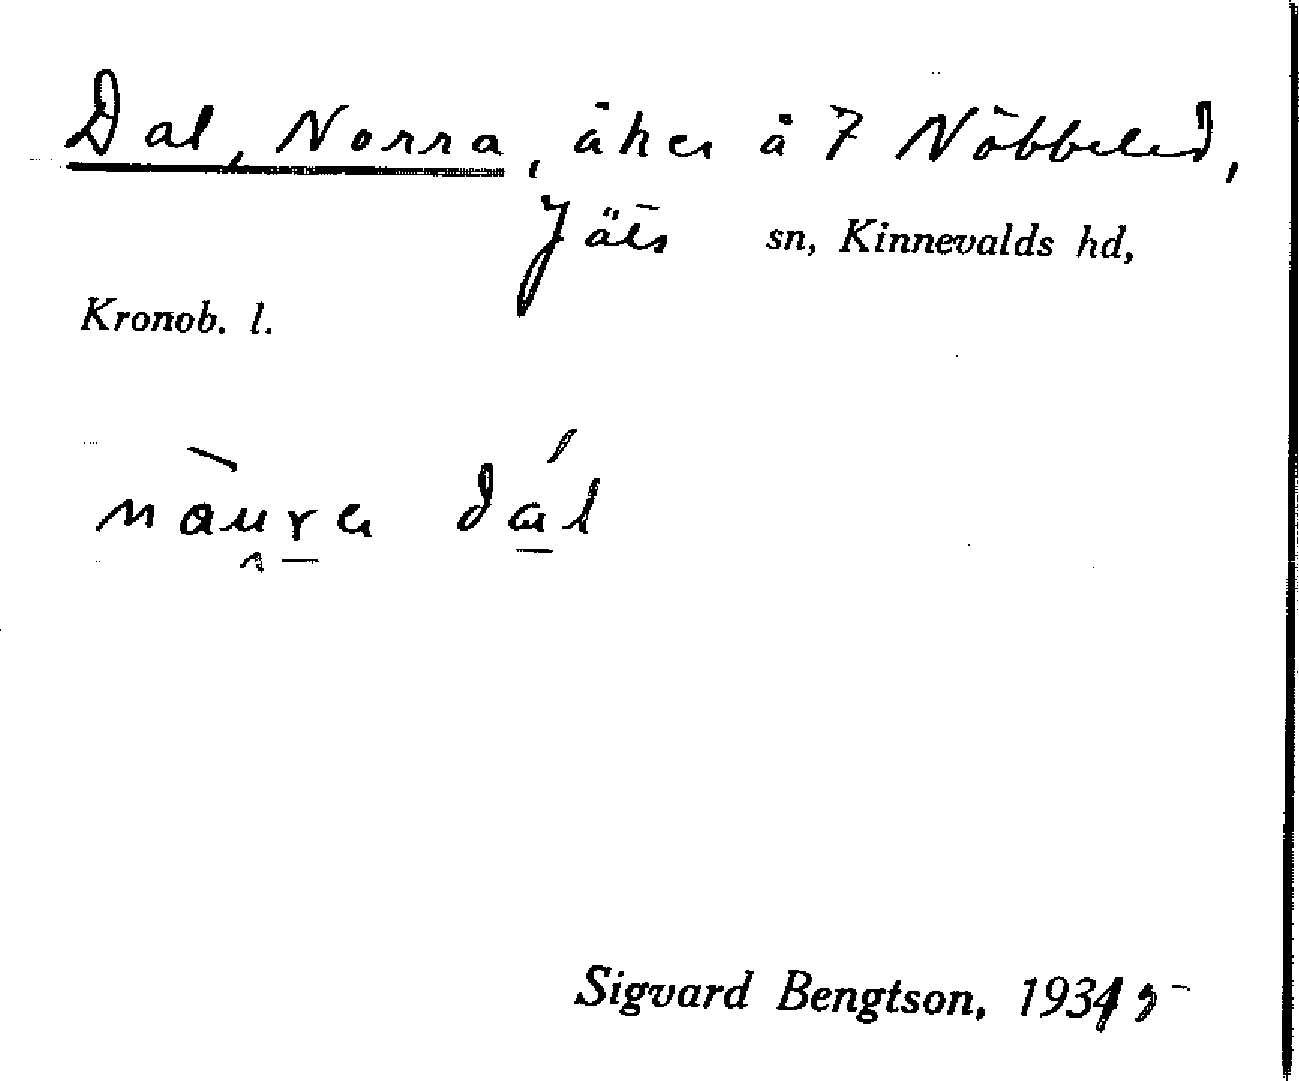 Dal, Norra, åker å 7 Nöbbeled,
Jäts sn, Kinnevalds hd,
Kronob. l.
nàu̯r̲a dá̲l
Sigvard Bengtson, 1935